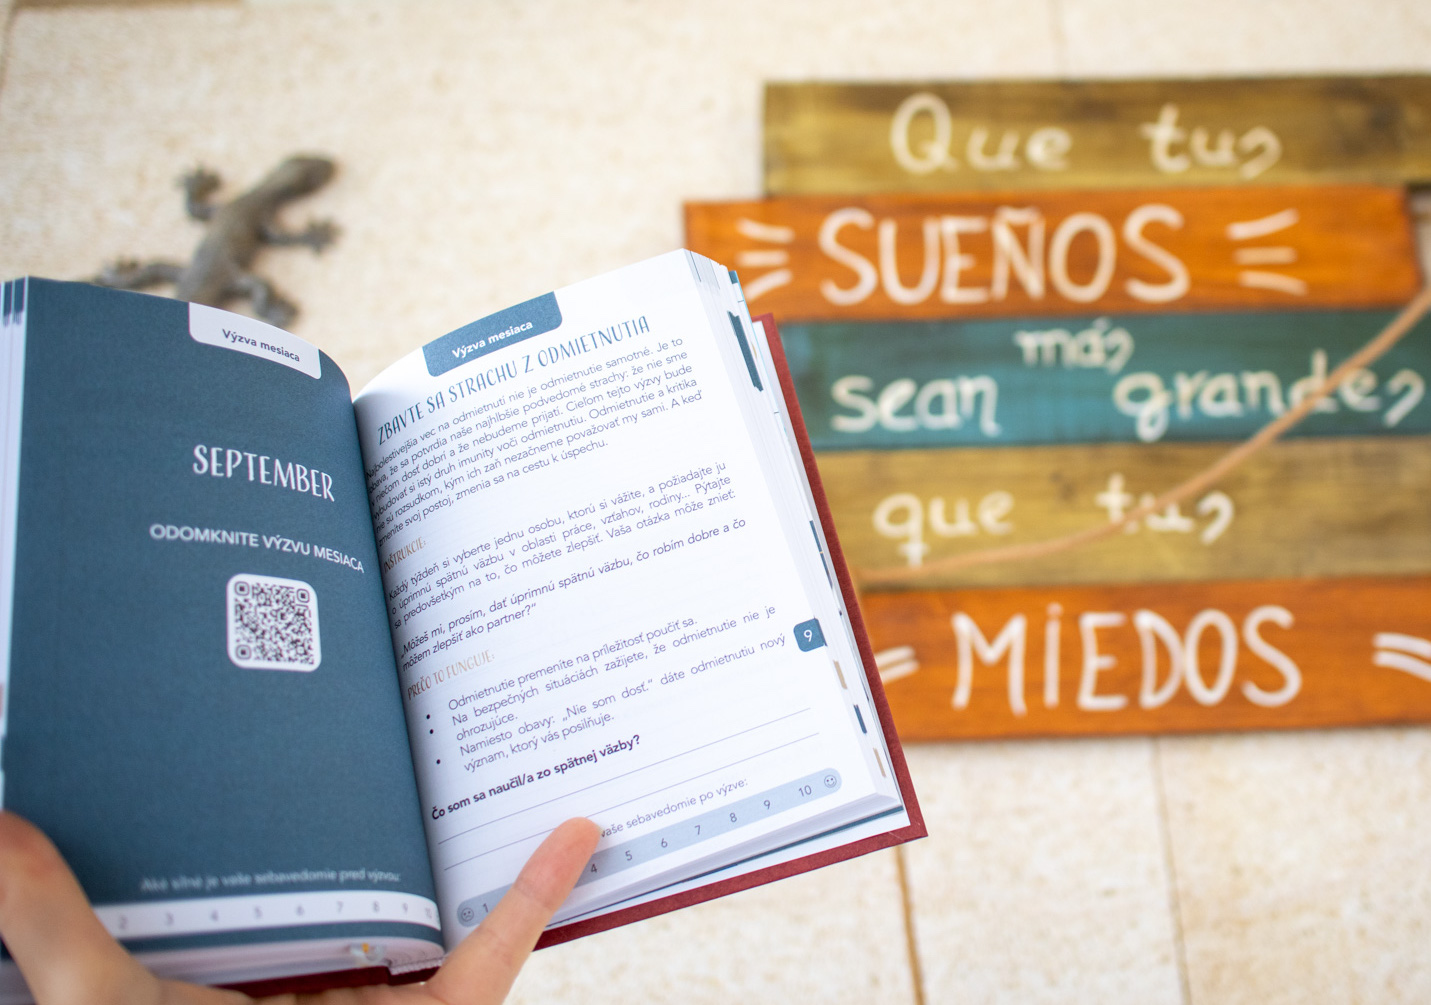 Výzva mesiaca
SEPTEMBER
ODOMKNITE VÝZVU MESIACA
Aké silné je vaše sebavedomie pred výzvou:
2 3 4 5 6 7 8 9 10
Výzva mesiaca
ZBAVTE SA STRACHU Z ODMIETNUTIA
Najbolestivejšia vec na odmietnutí nie je odmietnutie samotné. Je to
obava, že sa potvrdia naše najhlbšie podvedomé strachy: že nie sme
niečom dosť dobrí a že nebudeme prijatí. Cieľom tejto výzvy bude
vybudovať si istý druh imunity voči odmietnutiu. Odmietnutie a kritika
nie sú rozsudkom, kým ich zaň nezačneme považovať my sami. A keď
zmeníte svoj postoj, zmenia sa na cestu k úspechu.
INŠTRUKCIE:
Každý týždeň si vyberte jednu osobu, ktorú si vážite, a požiadajte ju
o úprimnú spätnú väzbu v oblasti práce, vzťahov, rodiny... Pýtajte
sa predovšetkým na to, čo môžete zlepšiť. Vaša otázka môže znieť:
„Môžeš mi, prosím, dať úprimnú spätnú väzbu, čo robím dobre a čo
môžem zlepšiť ako partner?“
PREČO TO FUNGUJE:
• Odmietnutie premeníte na príležitosť poučiť sa.
• Na bezpečných situáciách zažijete, že odmietnutie nie je
ohrozujúce.
• Namiesto obavy: „Nie som dosť.“ dáte odmietnutiu nový
význam, ktorý vás posilňuje.
Čo som sa naučil/a zo spätnej väzby?
vaše sebavedomie po výzve:
1 4 5 6 7 8 9 10
9
Que tus
SUEÑOS
más
sean grandes
que tus
MiEDOS